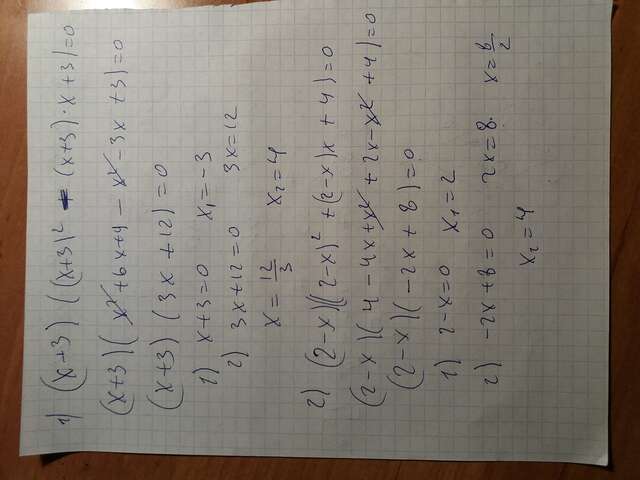 1) (x+3)((x+3)² - (x+3)·x+3)=0
(x+3)(x²+6x+9-x²-3x+3)=0
(x+3)(3x+12)=0
1) x+3=0 x₁=-3
2) 3x+12=0 3x=12
x=12/3 x₂=4
2) (2-x)((2-x)²+(2-x)x+4)=0
(2-x)(4-4x+x²+2x-x²+4)=0
(2-x)(-2x+8)=0
1) 2-x=0 x₁=2
2) -2x+8=0 2x=8 x=8/2
x₂=4